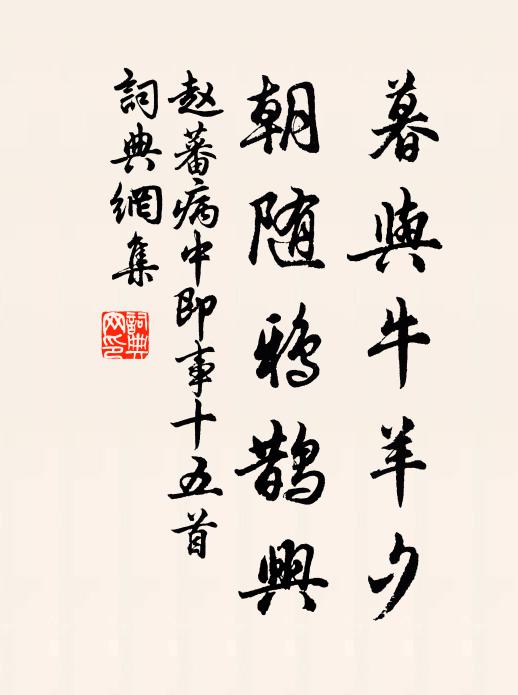 暮與牛羊夕
朝随鴉鵲興
赵蕃病中即事十五首
詞典網集
詞典网印